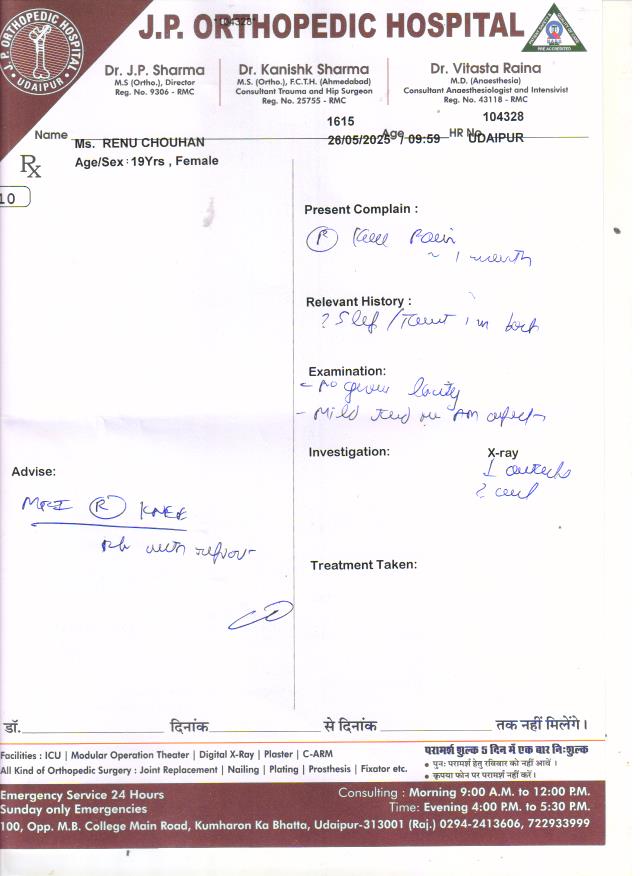 J.P. ORTHOPEDIC HOSPITAL
104328
J.P. ORTHOPEDIC HOSPITAL
UDAIPUR
PRE ACCREDITED
Dr. J.P. Sharma
M.S (Ortho.), Director
Reg. No. 9306 - RMC
Dr. Kanishk Sharma
M.S. (Ortho.), F.C.T.H. (Ahmedabad)
Consultant Trauma and Hip Surgeon
Reg. No. 25755 - RMC
Dr. Vitasta Raina
M.D. (Anaesthesia)
Consultant Anaesthesiologist and Intensivist
Reg. No. 43118 - RMC
1615 104328
Name Ms. RENU CHOUHAN 26/05/2025 / 09:59 Age HR No UDAIPUR
Rx Age/Sex : 19Yrs , Female
10
Present Complain :
(R) Knee Pain
~ 1 month
Relevant History :
Examination:
- No
- Mild
Investigation: X-ray
Advise:
MRI (R) KNEE
with
Treatment Taken:
डॉ. दिनांक से दिनांक तक नहीं मिलेंगे।
Facilities : ICU | Modular Operation Theater | Digital X-Ray | Plaster | C-ARM
All Kind of Orthopedic Surgery : Joint Replacement | Nailing | Plating | Prosthesis | Fixator etc.
परामर्श शुल्क 5 दिन में एक बार निःशुल्क
• पुनः परामर्श हेतु रविवार को नहीं आवें ।
• कृपया फोन पर परामर्श नहीं करें।
Emergency Service 24 Hours
Sunday only Emergencies
Consulting : Morning 9:00 A.M. to 12:00 P.M.
Time: Evening 4:00 P.M. to 5:30 P.M.
100, Opp. M.B. College Main Road, Kumharon Ka Bhatta, Udaipur-313001 (Raj.) 0294-2413606, 722933999